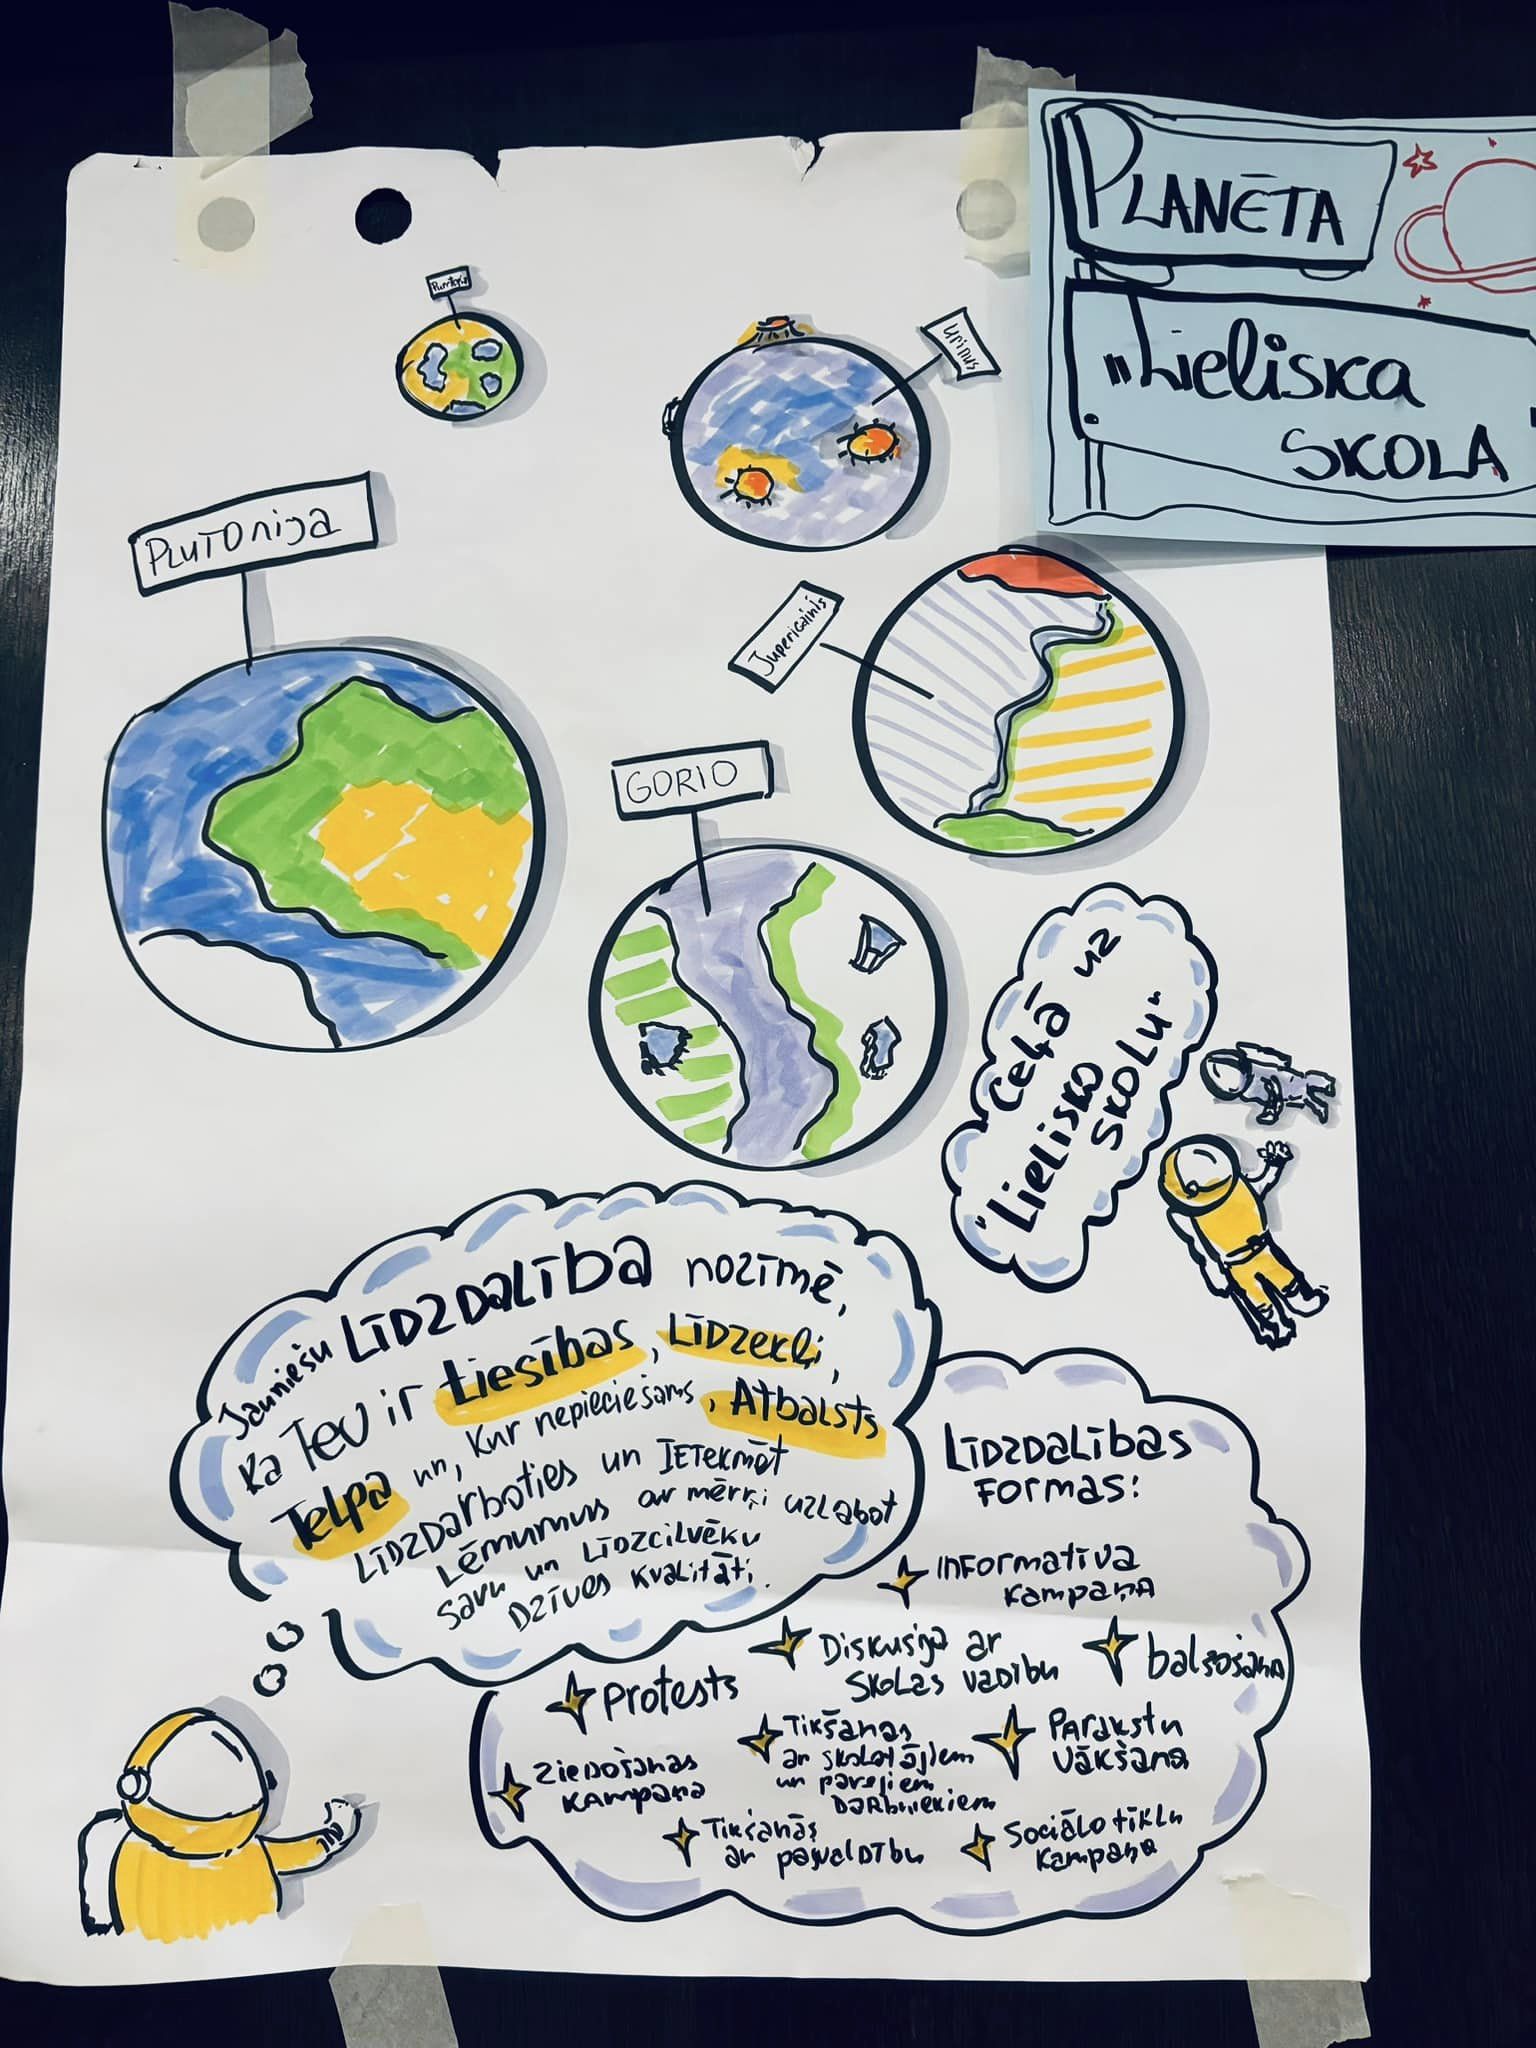 PLANĒTA
"Lieliska
SKOLA"
Urinus
PLUTOnija
Juperigainis
GORIO
Ceļā uz
"Lielisko
SKOLu"
Jauniešu LĪDZDALĪBA nozīmē,
ka Tev ir tiesības, LĪDZekļi,
Telpa un, kur nepieciešams, Atbalsts
LĪDZDarboties un IETEKMĒT
Lēmumus ar mērķi uzlabot
savu un LĪDZcilvēku
DZĪVes kvalitāti.
LĪDZDALĪBAS
FORMAS:
INFORMATĪVA
KAMPAŅA
DISKUSIJA ar
SKOLAS VADĪBU
balsošana
Protests
Tikšanās
ar skolotājiem
un pārējiem
DARBINIEKIEM
PARAKSTU
VĀKŠANA
ZIEDOŠANAS
KAMPAŅA
Tikšanās
ar pašvaldību
Sociālo tīklu
kampaņa